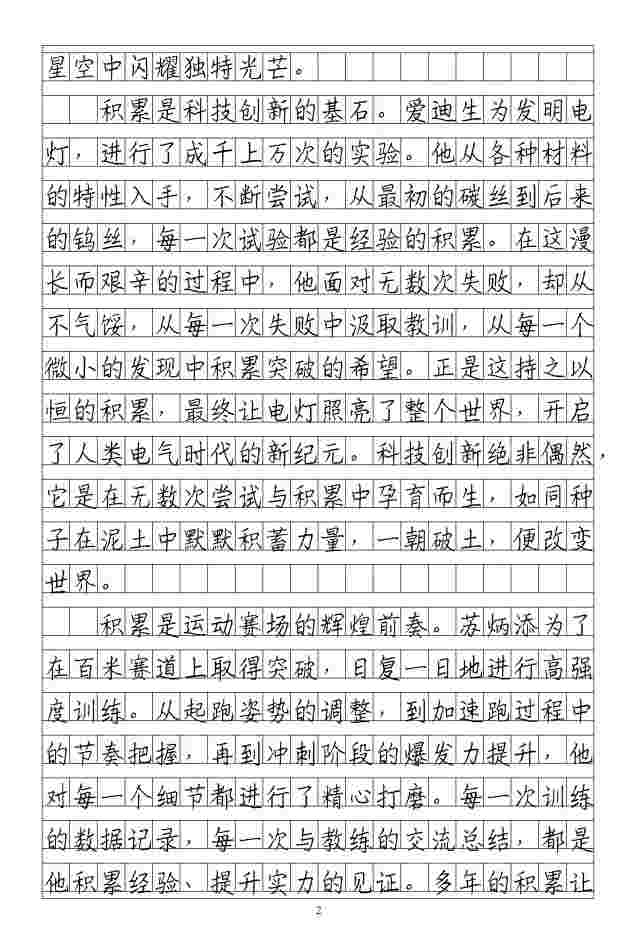 星空中闪耀独特光芒。
积累是科技创新的基石。爱迪生为发明电
灯，进行了成千上万次的实验。他从各种材料
的特性入手，不断尝试，从最初的碳丝到后来
的钨丝，每一次试验都是经验的积累。在这漫
长而艰辛的过程中，他面对无数次失败，却从
不气馁，从每一次失败中汲取教训，从每一个
微小的发现中积累突破的希望。正是这持之以
恒的积累，最终让电灯照亮了整个世界，开启
了人类电气时代的新纪元。科技创新绝非偶然，
它是在无数次尝试与积累中孕育而生，如同种
子在泥土中默默积蓄力量，一朝破土，便改变
世界。
积累是运动赛场的辉煌前奏。苏炳添为了
在百米赛道上取得突破，日复一日地进行高强
度训练。从起跑姿势的调整，到加速跑过程中
的节奏把握，再到冲刺阶段的爆发力提升，他
对每一个细节都进行了精心打磨。每一次训练
的数据记录，每一次与教练的交流总结，都是
他积累经验、提升实力的见证。多年的积累让
2